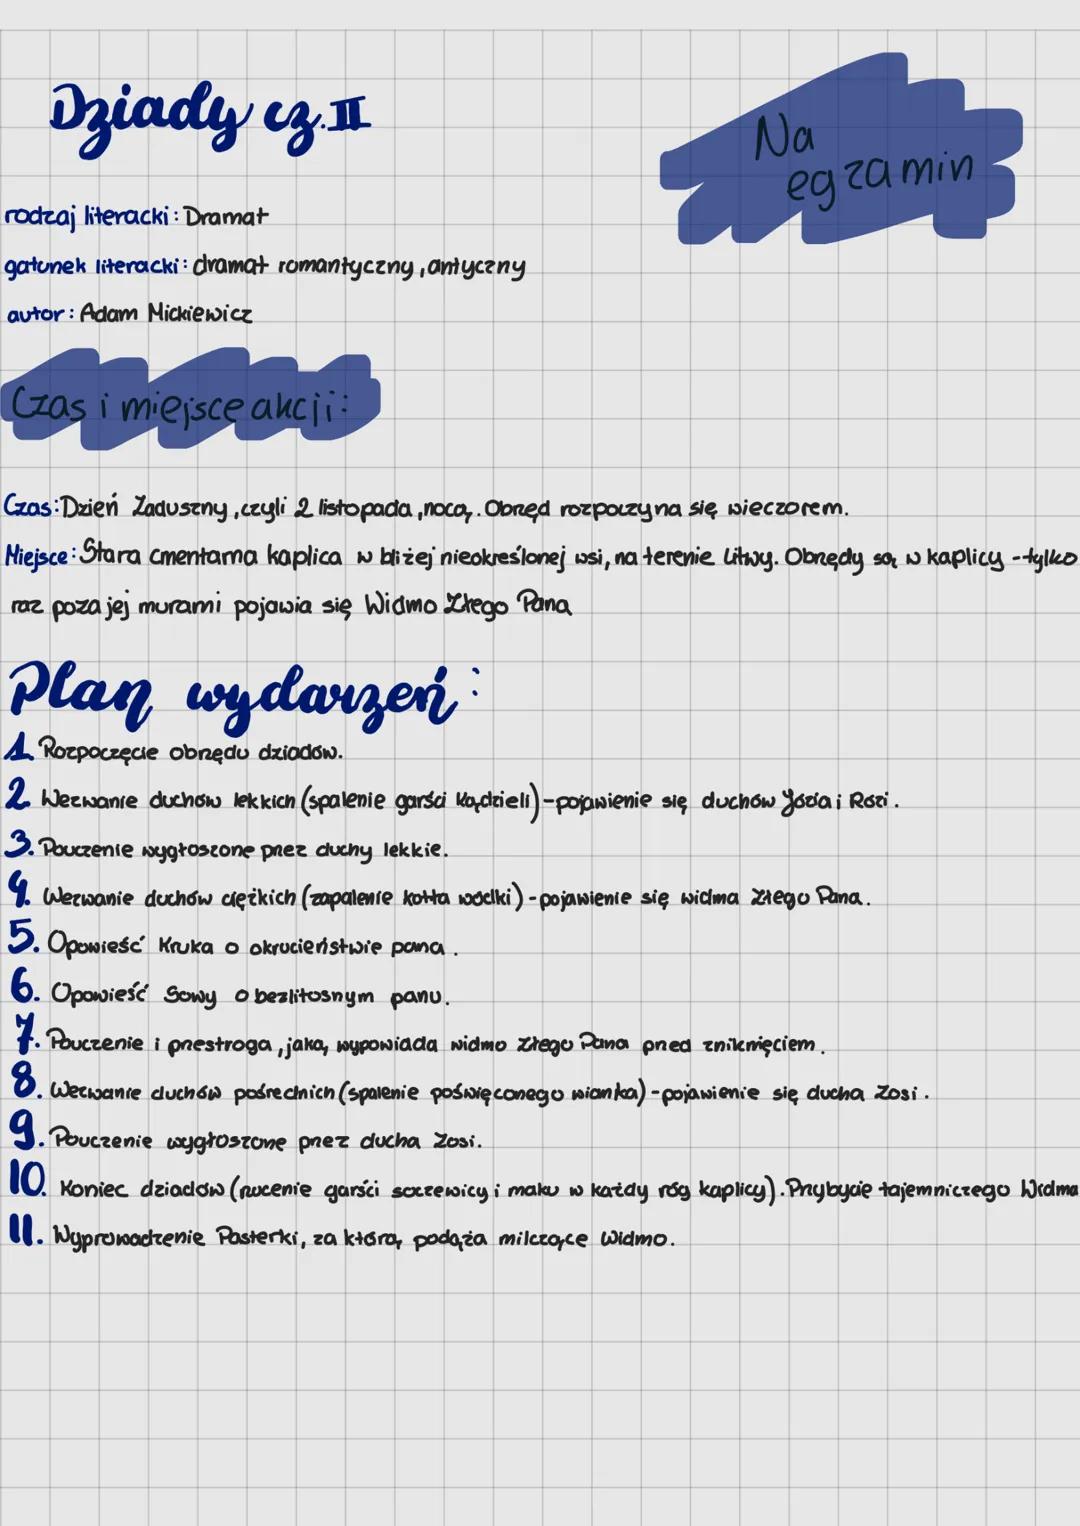 Dziady cz.II
Na
egzamin
rodzaj literacki: Dramat
gatunek literacki: dramat romantyczny, antyczny
autor: Adam Mickiewicz
Czas i miejsce akcji:
Czas: Dzień Zaduszny, czyli 2 listopada, nocą. Obrzęd rozpoczyna się wieczorem.
Miejsce: Stara cmentarna kaplica w bliżej nieokreślonej wsi, na terenie Litwy. Obrzędy są w kaplicy - tylko
raz poza jej murami pojawia się Widmo Złego Pana
Plan wydarzeń:
1. Rozpoczęcie obrzędu dziadów.
2. Wezwanie duchów lekkich (spalenie garści kądzieli) - pojawienie się duchów Józia i Rózi.
3. Pouczenie wygłoszone przez duchy lekkie.
4. Wezwanie duchów ciężkich (zapalenie kotła wódki) - pojawienie się widma Złego Pana.
5. Opowieść Kruka o okrucieństwie pana.
6. Opowieść Sowy o bezlitosnym panu.
7. Pouczenie i przestroga, jaką wypowiada widmo Złego Pana przed zniknięciem.
8. Wezwanie duchów pośrednich (spalenie poświęconego wianka) - pojawienie się ducha Zosi.
9. Pouczenie wygłoszone przez ducha Zosi.
10. Koniec dziadów (rzucenie garści soczewicy i maku w każdy róg kaplicy). Przybycie tajemniczego Widma
11. Wyprowadzenie Pasterki, za którą podąża milczące Widmo.